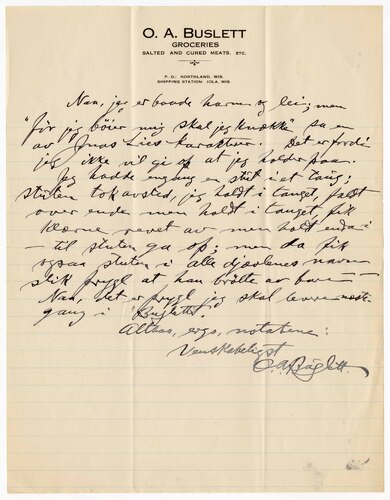 O. A. BUSLETT
GROCERIES
SALTED AND CURED MEATS, ETC.
P. O.: NORTHLAND, WIS.
SHIPPING STATION: IOLA, WIS.
Naa, jeg er baade harm og lei; men
"før jeg bøier mig skal jeg knække" sa en
av Jonas Lies karakterer. Det er fordi
jeg ikke vil gi op at jeg holder paa.
Jeg hadde engang en stut i et taug;
stuten tok avsted, jeg holdt i tauget, faldt
over ende men holdt i tauget fik
klærne revet av men holdt enda i
– til stuten ga op; men da fik
ogsaa stuten i alle djævlenes navn
slik prygl at han brølte
Naa, det er prygl jeg skal levere næste
gang i "Buslett's".
Altsaa, ergo, notabene:
Venskabeligst
O. A. Buslett.